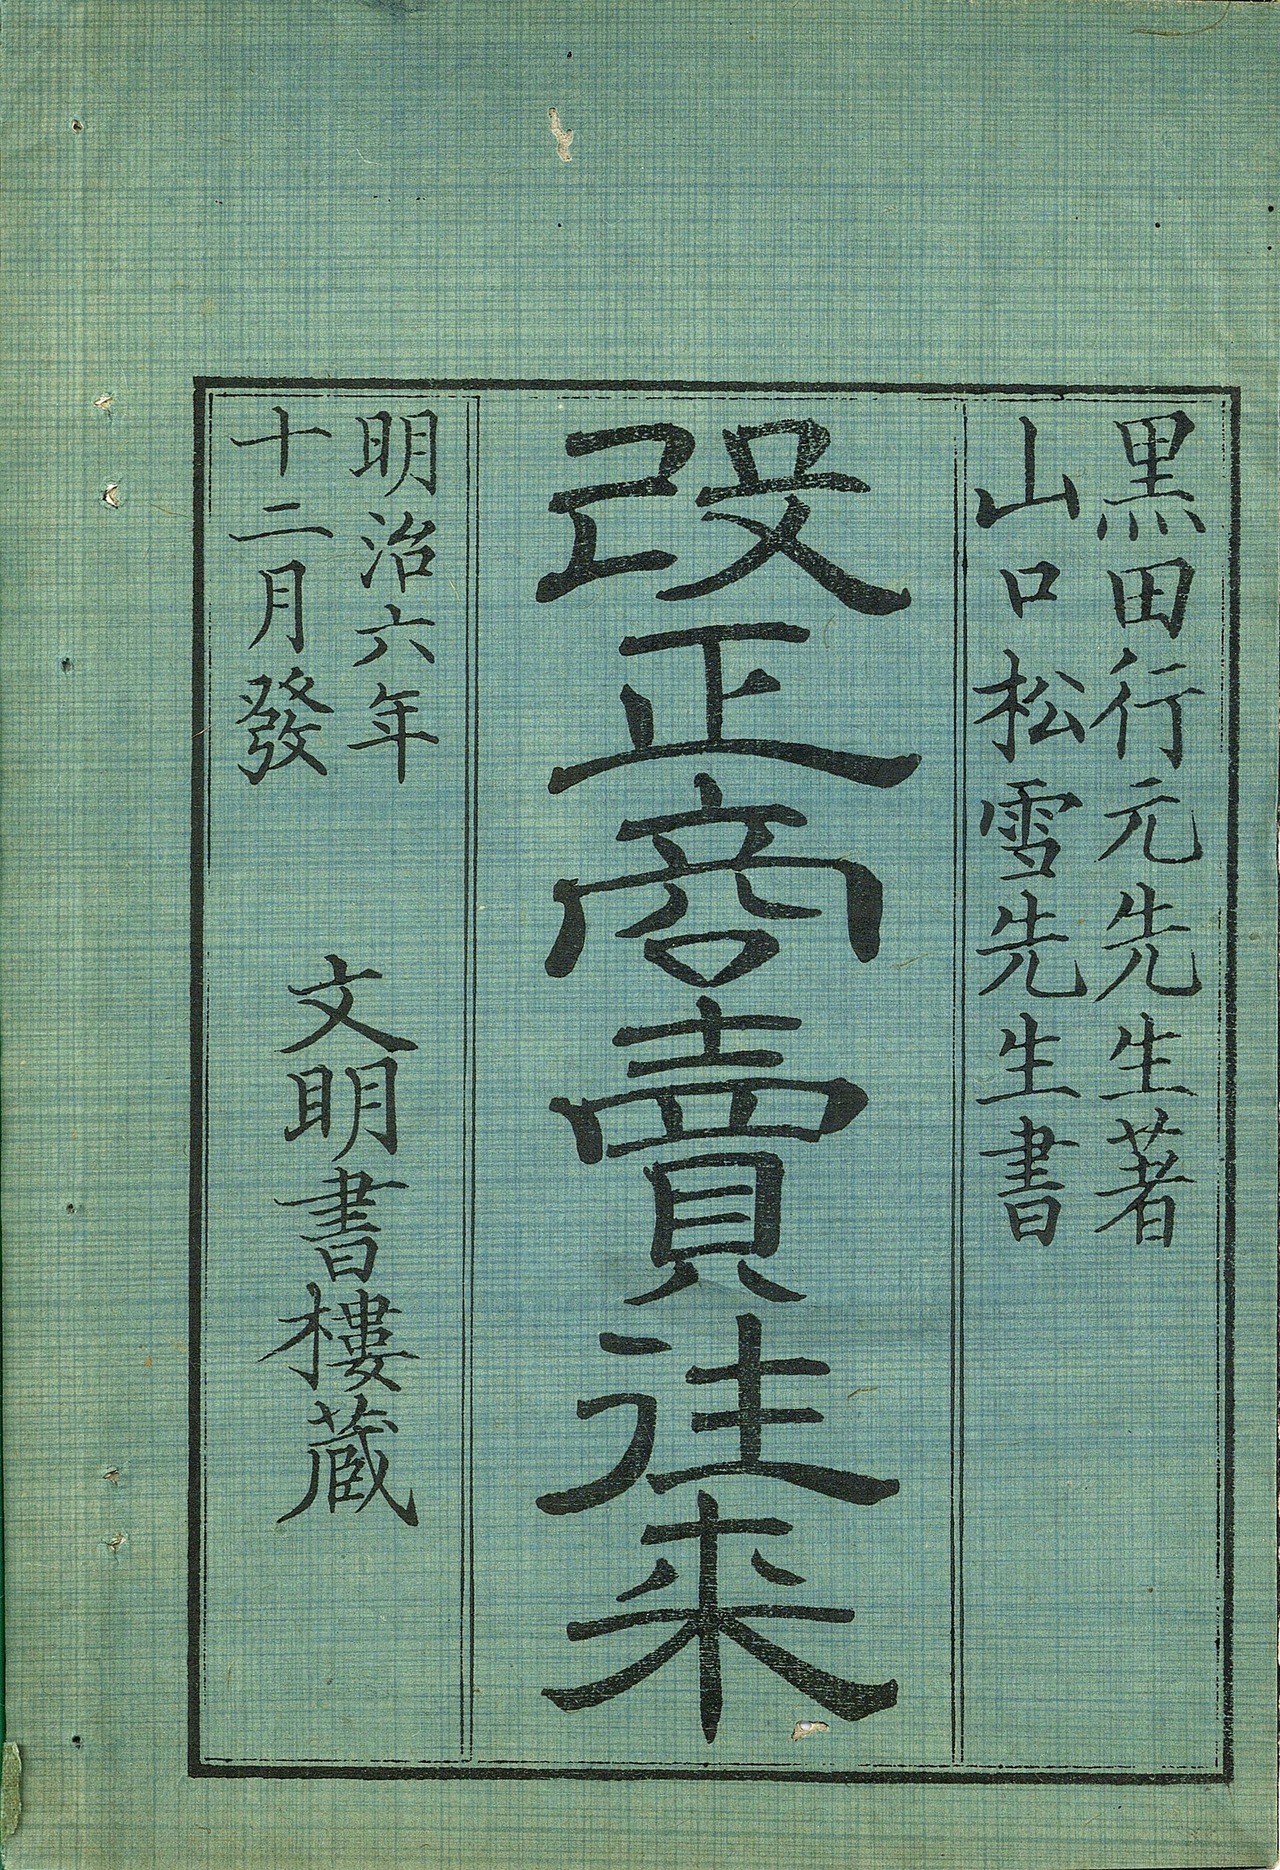 黒田行元先生著
山口松雪先生書
改正商賣往来
明治六年
十二月發
文明書樓蔵